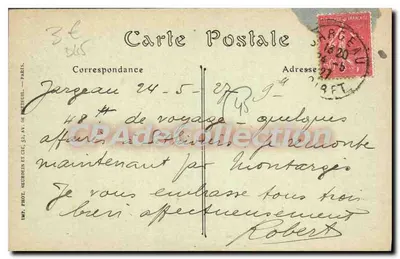 3€
D45
Carte Postale
Correspondance
Adresse
JARGEAU
18 20
24 -5
27
LOIRET
Jargeau 24-5-27
45
48 H de voyage - quelques
affaires
remonte
maintenant par Montargis
Je vous embrasse tous trois
bien affectueusement
Robert
CPA de Collection
IMP. PHOT. NEURDEIN ET CIE, 52, AV. DE BRETEUIL. - PARIS.